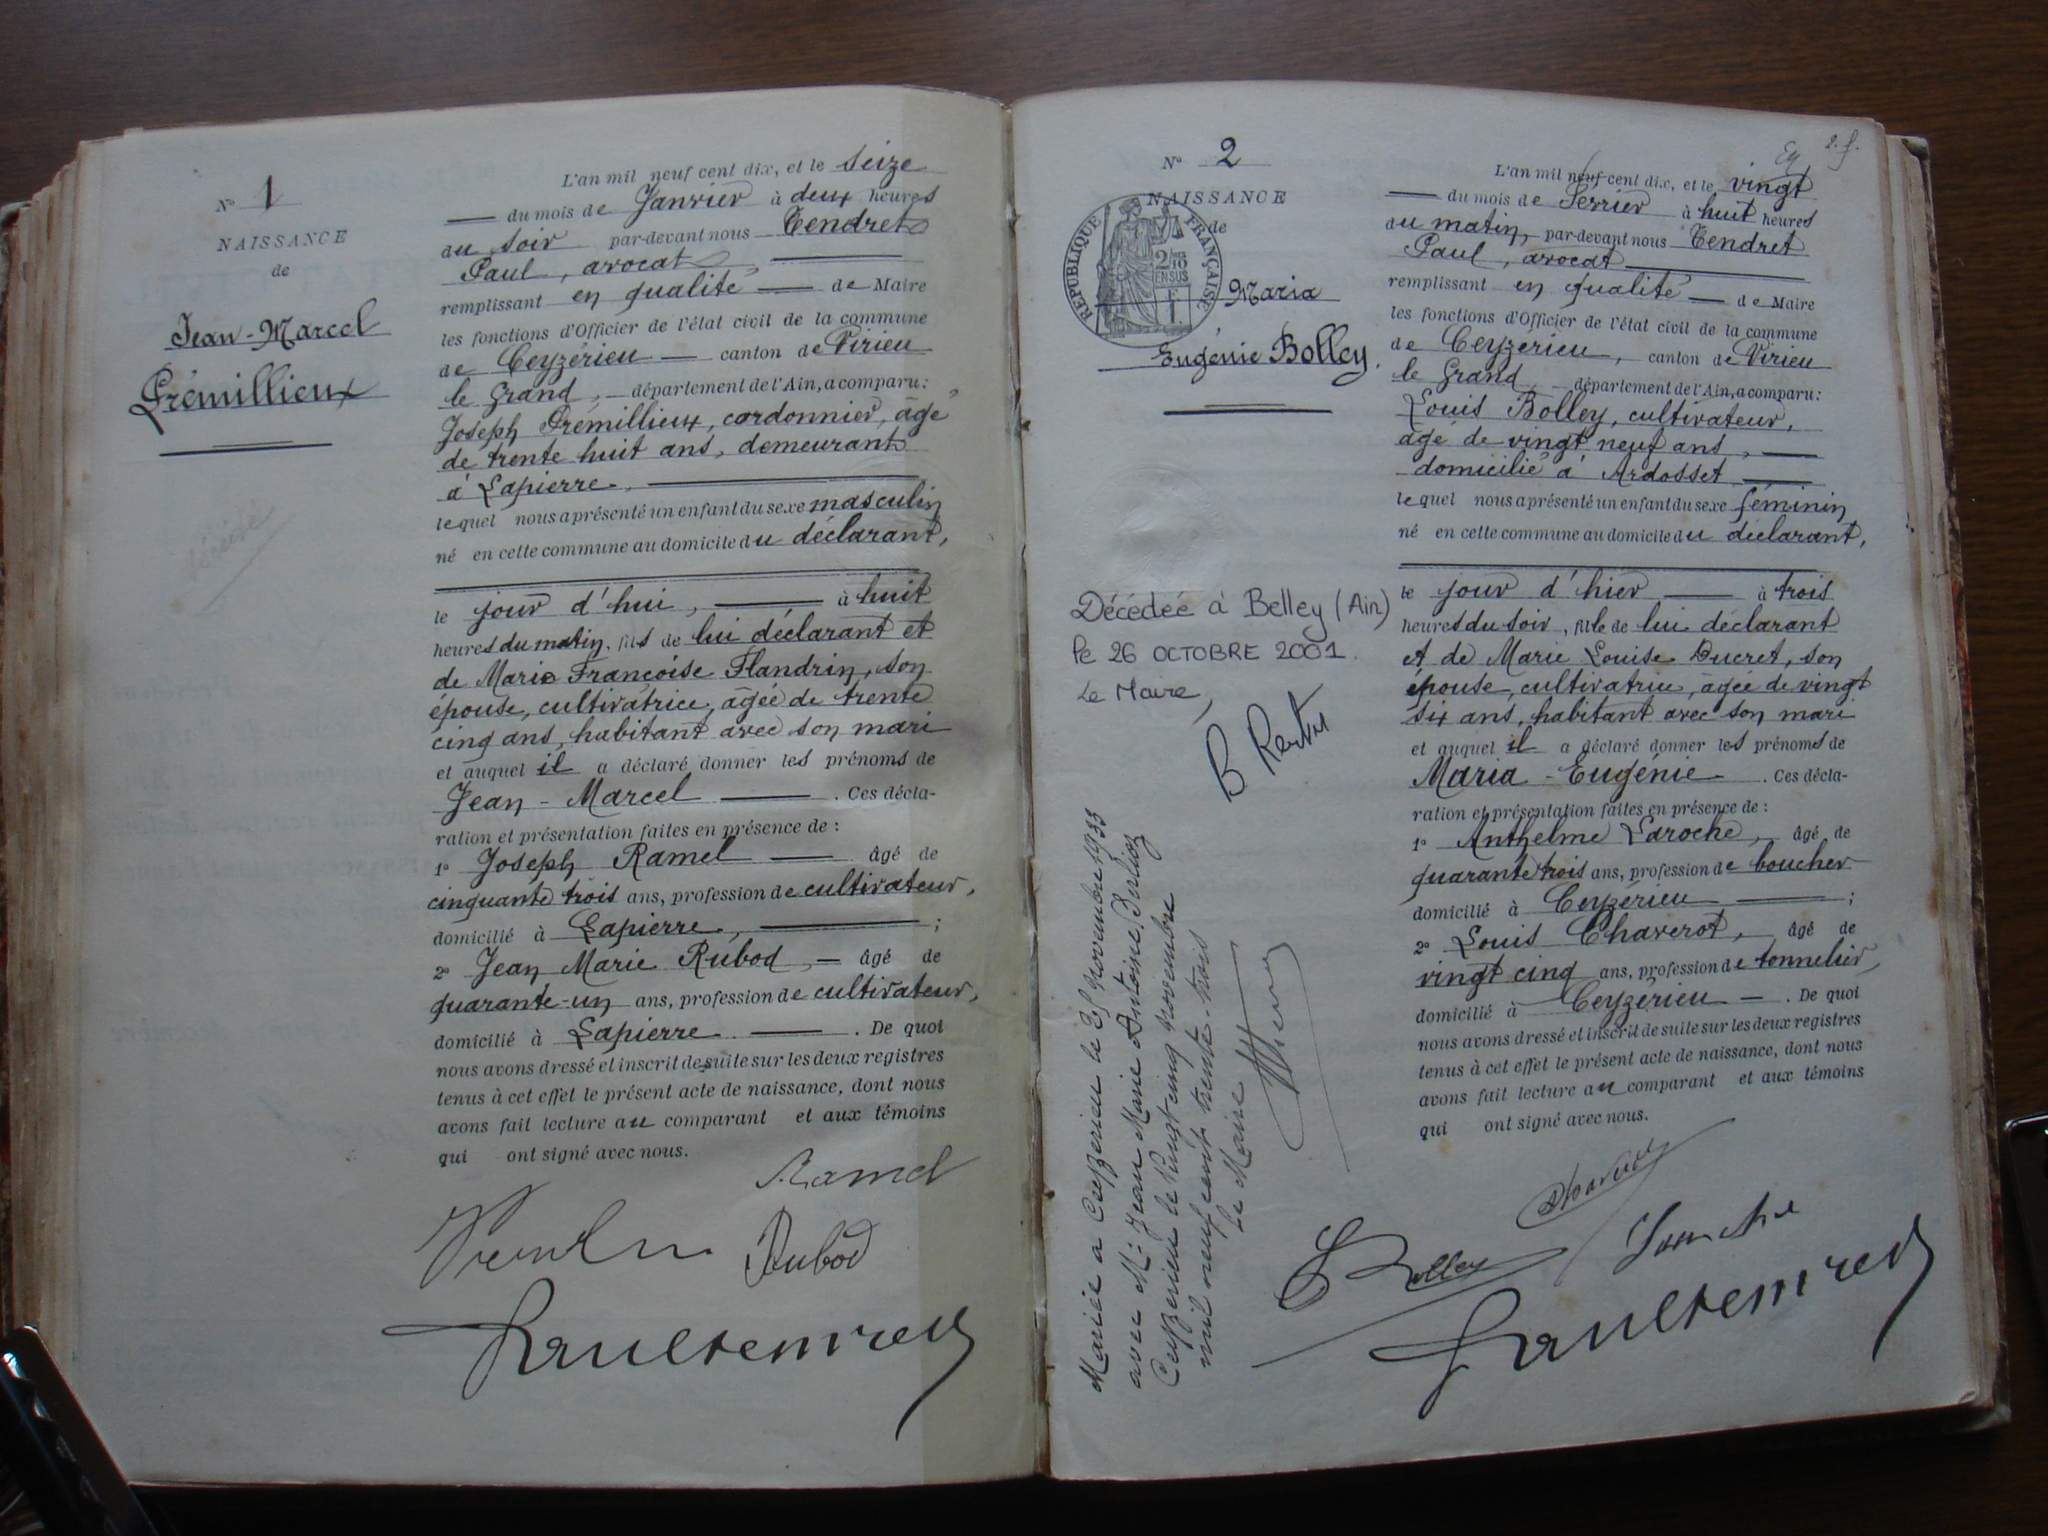 N° 1
NAISSANCE
de
Jean-Marcel
Prémillieux
décédé
L'an mil neuf cent dix, et le seize
du mois de Janvier à deux heures
du soir par-devant nous Tendret
Paul, avocat
remplissant en qualité de Maire
les fonctions d'Officier de l'état civil de la commune
de Ceyzérieu canton de Virieu
le Grand, département de l'Ain, a comparu:
Joseph Prémillieux, cordonnier, âgé
de trente huit ans, demeurant
à Lapierre,
lequel nous a présenté un enfant du sexe masculin
né en cette commune au domicile du déclarant,
le jour d'hui, à huit
heures du matin, fils de lui déclarant et
de Marie Françoise Flandrin, son
épouse, cultivatrice, âgée de trente
cinq ans, habitant avec son mari
et auquel il a déclaré donner les prénoms de
Jean-Marcel . Ces décla-
ration et présentation faites en présence de:
1° Joseph Ramel âgé de
cinquante trois ans, profession de cultivateur,
domicilié à Lapierre, ;
2° Jean Marie Rubod, âgé de
quarante-un ans, profession de cultivateur,
domicilié à Lapierre . De quoi
nous avons dressé et inscrit de suite sur les deux registres
tenus à cet effet le présent acte de naissance, dont nous
avons fait lecture au comparant et aux témoins
qui ont signé avec nous.
Ramel
Rubod
N° 2
NAISSANCE
de
RÉPUBLIQUE FRANÇAISE
2/10 EN SUS
Maria
Eugénie Bolley.
Décédée à Belley (Ain)
le 26 OCTOBRE 2001.
Le Maire,
Mariée à Ceyzérieu le 25 Novembre 1933
avec Mr: Jean Marie Antoine Berlioz
Ceyzérieu le Vingt cinq novembre
mil neuf cent trente-trois
Le Maire
2. f.
L'an mil neuf cent dix, et le vingt
du mois de Février à huit heures
du matin, par-devant nous Tendret
Paul, avocat
remplissant en qualité de Maire
les fonctions d'Officier de l'état civil de la commune
de Ceyzérieu, canton de Virieu
le Grand, département de l'Ain, a comparu:
Louis Bolley, cultivateur,
âgé de vingt neuf ans,
domicilié à Ardosset
lequel nous a présenté un enfant du sexe féminin
né en cette commune au domicile du déclarant,
le jour d'hier à trois
heures du soir, fille de lui déclarant
et de Marie Louise Ducret, son
épouse, cultivatrice, âgée de vingt
six ans, habitant avec son mari
et auquel il a déclaré donner les prénoms de
Maria-Eugénie . Ces décla-
ration et présentation faites en présence de:
1° Anthelme Laroche, âgé de
quarante trois ans, profession de boucher
domicilié à Ceyzérieu ;
2° Louis Chaverot, âgé de
vingt cinq ans, profession de tonnelier,
domicilié à Ceyzérieu . De quoi
nous avons dressé et inscrit de suite sur les deux registres
tenus à cet effet le présent acte de naissance, dont nous
avons fait lecture au comparant et aux témoins
qui ont signé avec nous.
Chaverot
Bolley
Laroche
Paul Tendret